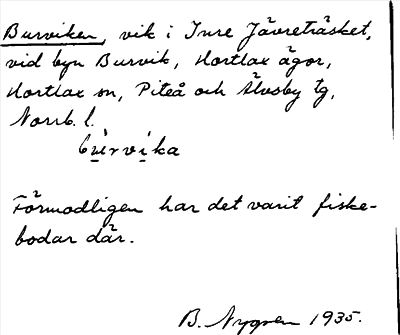 Burviken, vik i Inre Jävreträsket,
vid byn Burvik, Hortlax ägor,
Hortlax sn, Piteå och Älvsby tg,
Norrb. l.
bu̲rvi̲ka
Förmodligen har det varit fiske-
bodar där.
B. Nygren 1935.